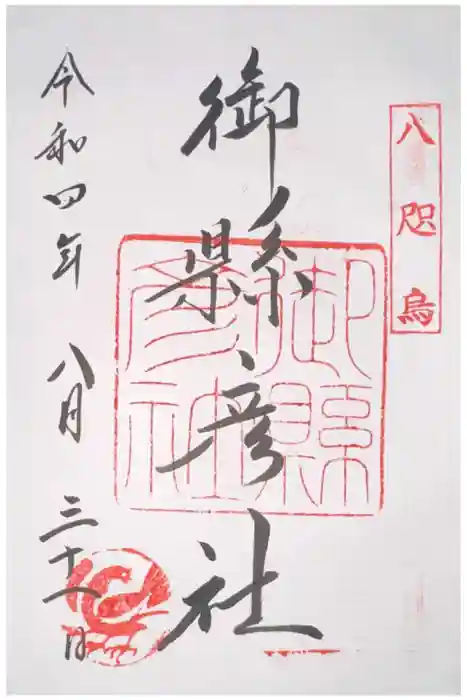 八咫烏
御縣彦社
御縣
彦社
令和四年 八月 三十一日